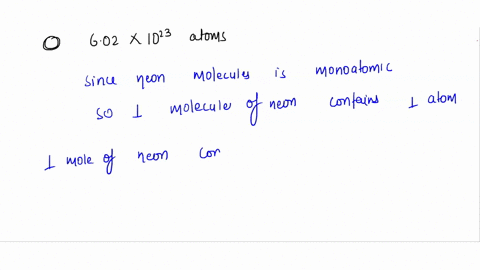 6.02 × 10²³ atoms
since neon molecules is monoatomic
so 1 molecule of neon contains 1 atom
1 mole of neon con